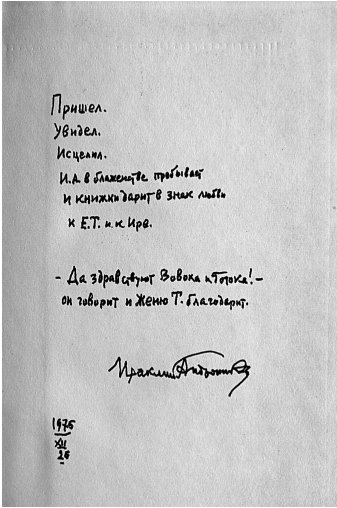 Пришел.
Увидел.
Исцелил.
И.А. в блаженстве пребывает
и книжки дарит в знак любви
к Е.Т. и к Ире.
– Да здравствуют Вовока и Тотока! –
он говорит и Женю Т. благодарит.
Ираклий Андроников
1976
XII
26